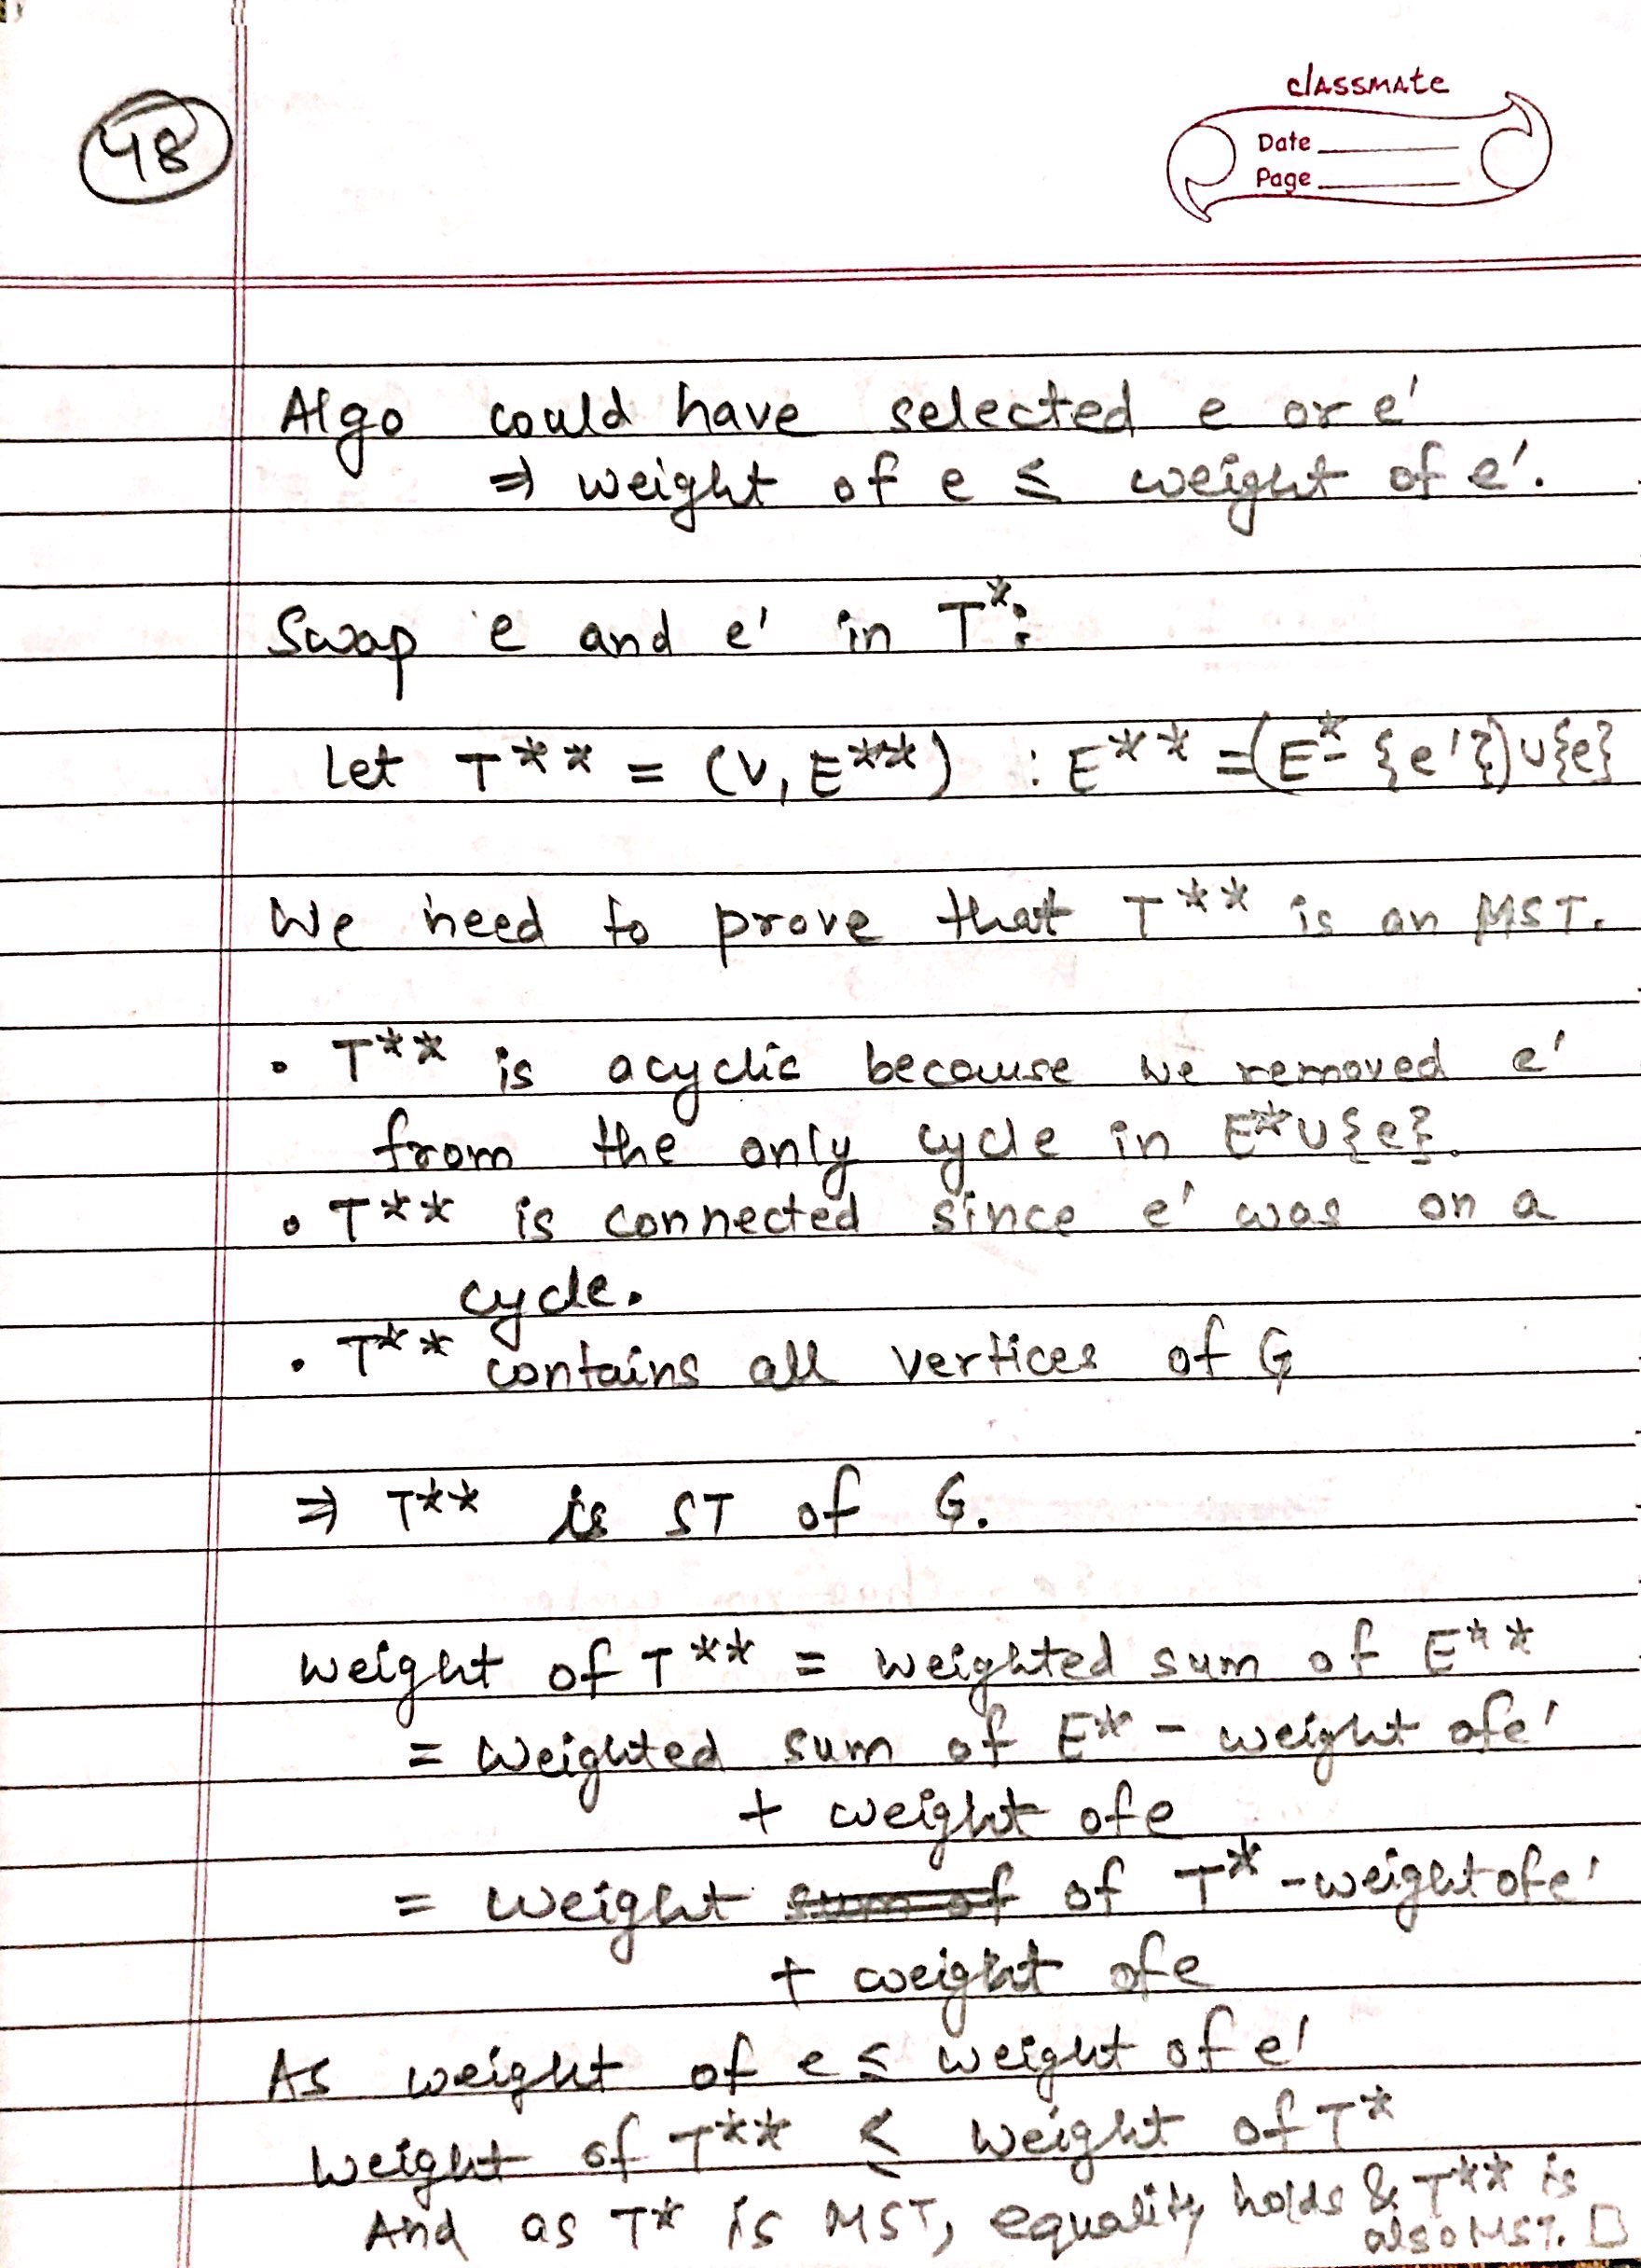 classmate
Date
Page
48
Algo could have selected e or e'
⇒ weight of e ≤ weight of e'.
Swap e and e' in T*:
Let T** = (V, E**) : E** = (E* - {e'}) ∪ {e}
We need to prove that T** is an MST.
• T** is acyclic because we removed e'
from the only cycle in E* ∪ {e}.
• T** is connected since e' was on a
cycle.
• T** contains all vertices of G
⇒ T** is ST of G.
weight of T** = weighted sum of E**
= Weighted sum of E* - weight of e'
+ weight of e
= weight sum of of T* - weight of e'
+ weight of e
As weight of e ≤ weight of e'
Weight of T** ≤ weight of T*
And as T* is MST, equality holds & T** is
also MST. □